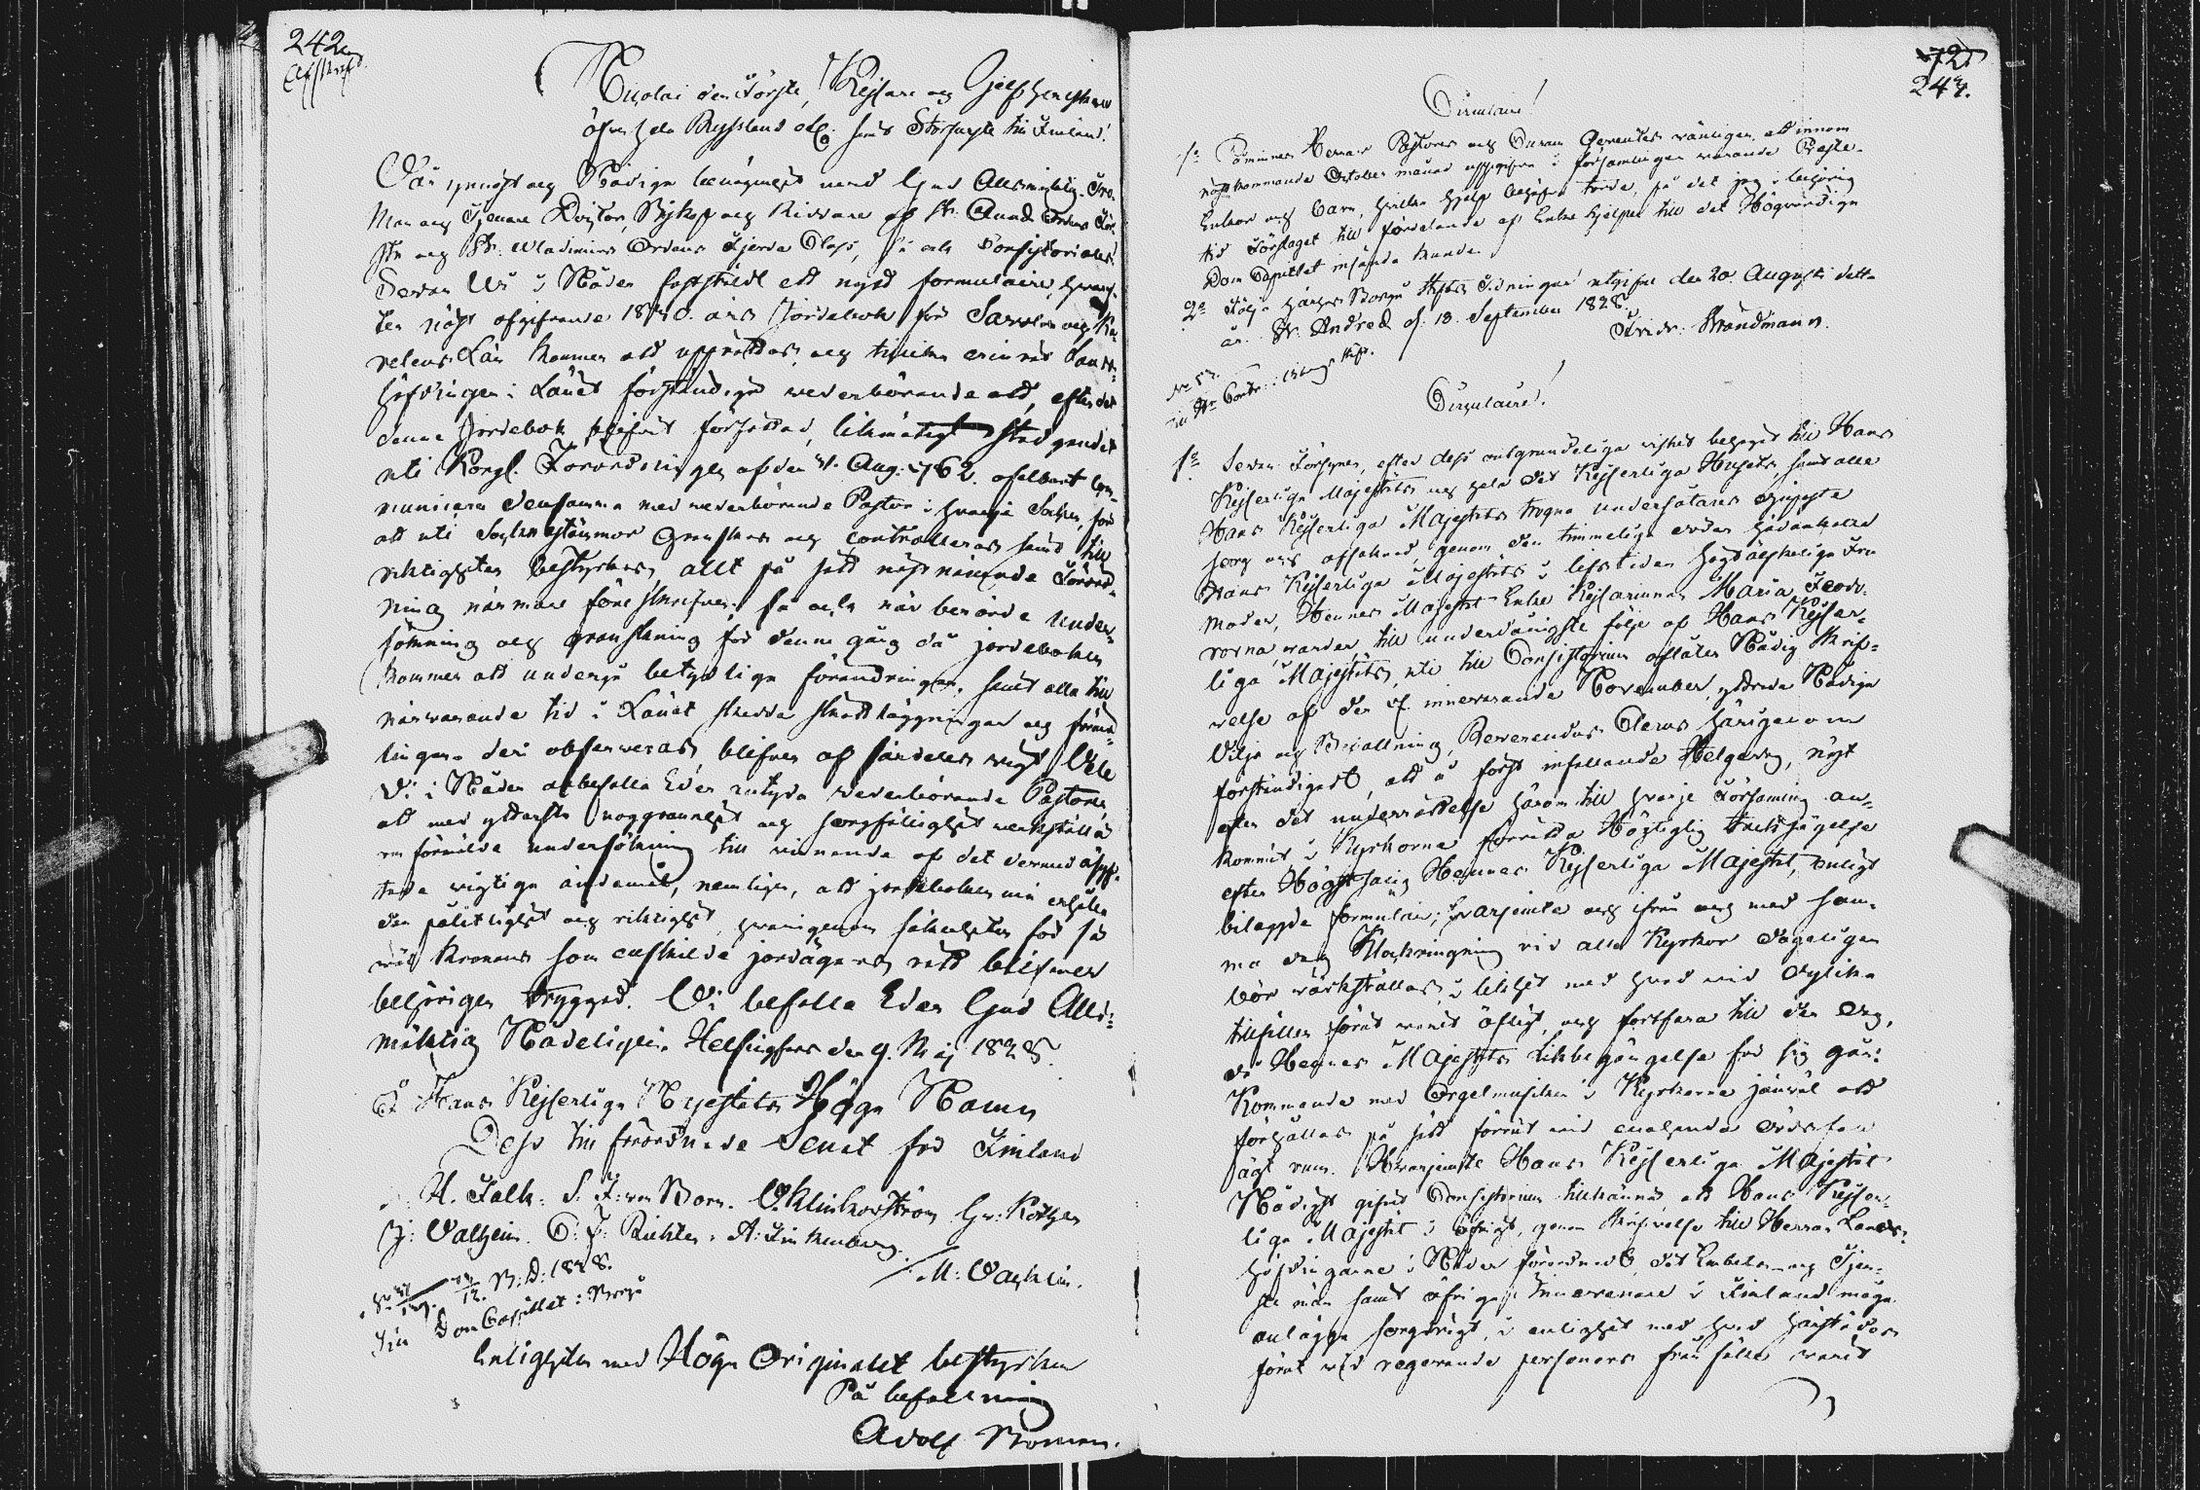 242
Afskrift.
Nicolai den Förste, Kejsare och Sjelfherrskare
öfver hela Ryssland etc. samt Storfurste till Finland!
Vår ynnest och Nådiga benägenhet med Gud Allsmäktig. Tro
Man och Tjenare Doctor, Biskop och Riddare af St. Annæ Ordens För-
sta och St. Wladimirs Ordens Fjerde Class, så ock Consistoriales!
Sedan Wi i Nåder fastställt ett nytt formulaire, hvar-
efter näst afgifvande 1830 års Jordebok för Savolax och Ka-
relens Län kommer att upprättas, och tillika erinrat Lands-
höfdingen i Länet förständiga wederbörande att, efter det
denna Jordebok blifvit författad, likmätigt stadgandet
uti Kongl. Förordningen af den Aug. 1762. ofelbart com-
municera densamma med wederbörande Pastor i hvarje Socken, för
att uti Sockenstämmor Granskas och controlleras samt till
riktigheten bestyrkas, allt på sätt näst nämnde Förord-
ning närmare föreskrifver; så ock när berörde under-
sökning och granskning för denna gång då jordeboken
kommer att undergå betydliga förändringar, samt alla till
närvarande tid i Länet skedda skattläggningar och förmed-
lingar deri observeras, blifver af särdeles vigt Vele
Vi i Nåder anbefalla Eder antyda wederbörande Pastorer
att med yttersta noggrannhet och sorgfällighet verkställa
en förmäld undersökning till vinnande af det dermed åsyf-
tade wigtiga ändamål, nemligen, att jordeboken må erhålla
den pålitlighet och riktighet, hvarigenom säkerheten för så
väl Kronans som enskilde jordägares rätt blifver
behörigen tryggad. Vi befalle Eder Gud Alls-
mäktig Nådeligen. Helsingfors den 9. Maj 1828.
I Hans Kejserliga Majestäts Höga Namn
Dess tillförordnade Senat för Finland
H. Falck. S. F. von Born. O. Klinckowström G. Rotkirch
J. Walheim. C. F. Richter. A. Finckenberg.
M: Vachlin.
B: D: 1828.
Till DomCapitlet i Borgå
Enligheten med Höga Originalet bestyrker
På befallning
Adolf Boman.
72
243.
Circulaire!
1o Påminnes Herrar Pastorer och Curam Gerentes vänligen, att innom
nästkommande October månad uppgifva i församlingen varande Preste-
Enkor och barn, hvilka hjelp behöfva torde, på det jag i behörig
tid Förslaget till fördelande af Enke hjelpen till det Högvördiga
Dom Capitlet insända kunde.
2o Följa härhos Borgå Stifts Tidningar utgifne den 20. Augusti detta
år. St. Andreæ d. 13. September 1828.
Fredr. Strandmann.
Circulaire!
1o Sedan Försynen, efter dess outgrundeliga vishet behagat till Hans
Kejserliga Majestäts och hela det Kejserliga Husets, samt alla
Hans Kejserliga Majestäts trogna undersåtares djupaste
sorg och afsaknad, genom den timmeliga döden hädankalla
Hans Kejserliga Majestäts i lifstiden högtälskeliga Fru
Moder, Hennes Majestät Enke Kejsarinnan Maria Feodo-
rovna, warder, till underdånigste följe af Hans Kejser-
liga Majestäts, uti till Consistorium aflåten Nådig skrif-
velse af den innevarande November, yttrade Nådiga
Vilja och Befallning, Reverendus Clerus härigenom
förständigadt, att å först infallande Helgedag, näst
efter det underrättelse härom till hvarje Församling an-
kommit, i Kyrkorne förrätta Högtidlig tacksägelse
efter Högstsalig Hennes Kejserliga Majestät, enligt
bilagde formulair; hvarjemte och ifrån och med sam-
ma dag Klockringning vid alla Kyrkor dageligen
bör verkställas i likhet med hvad vid dylika
tillfällen förut warit öfligt, och fortfara till den dag,
då Hennes Majestäts likbegängelse för sig går:
Kommande med Orgelmusiken i Kyrkorne jämväl att
förhållas på sätt förut vid enahanda dödsfall
ägt rum. Hvarjemte Hans Kejserliga Majestät
Nådigst gifvit Consistorium tillkänna, att Hans Kejser-
liga Majestät i öfrigt, genom skrifvelse till Herrar Lands-
höfdingarne i Nåder förordnat, det Embets- och Tjenste-
män samt öfrige Innevånare i Finland måga
anlägga sorgdrägt, i enlighet med hvad härstädes
förut vid regerande personers frånfälle warit